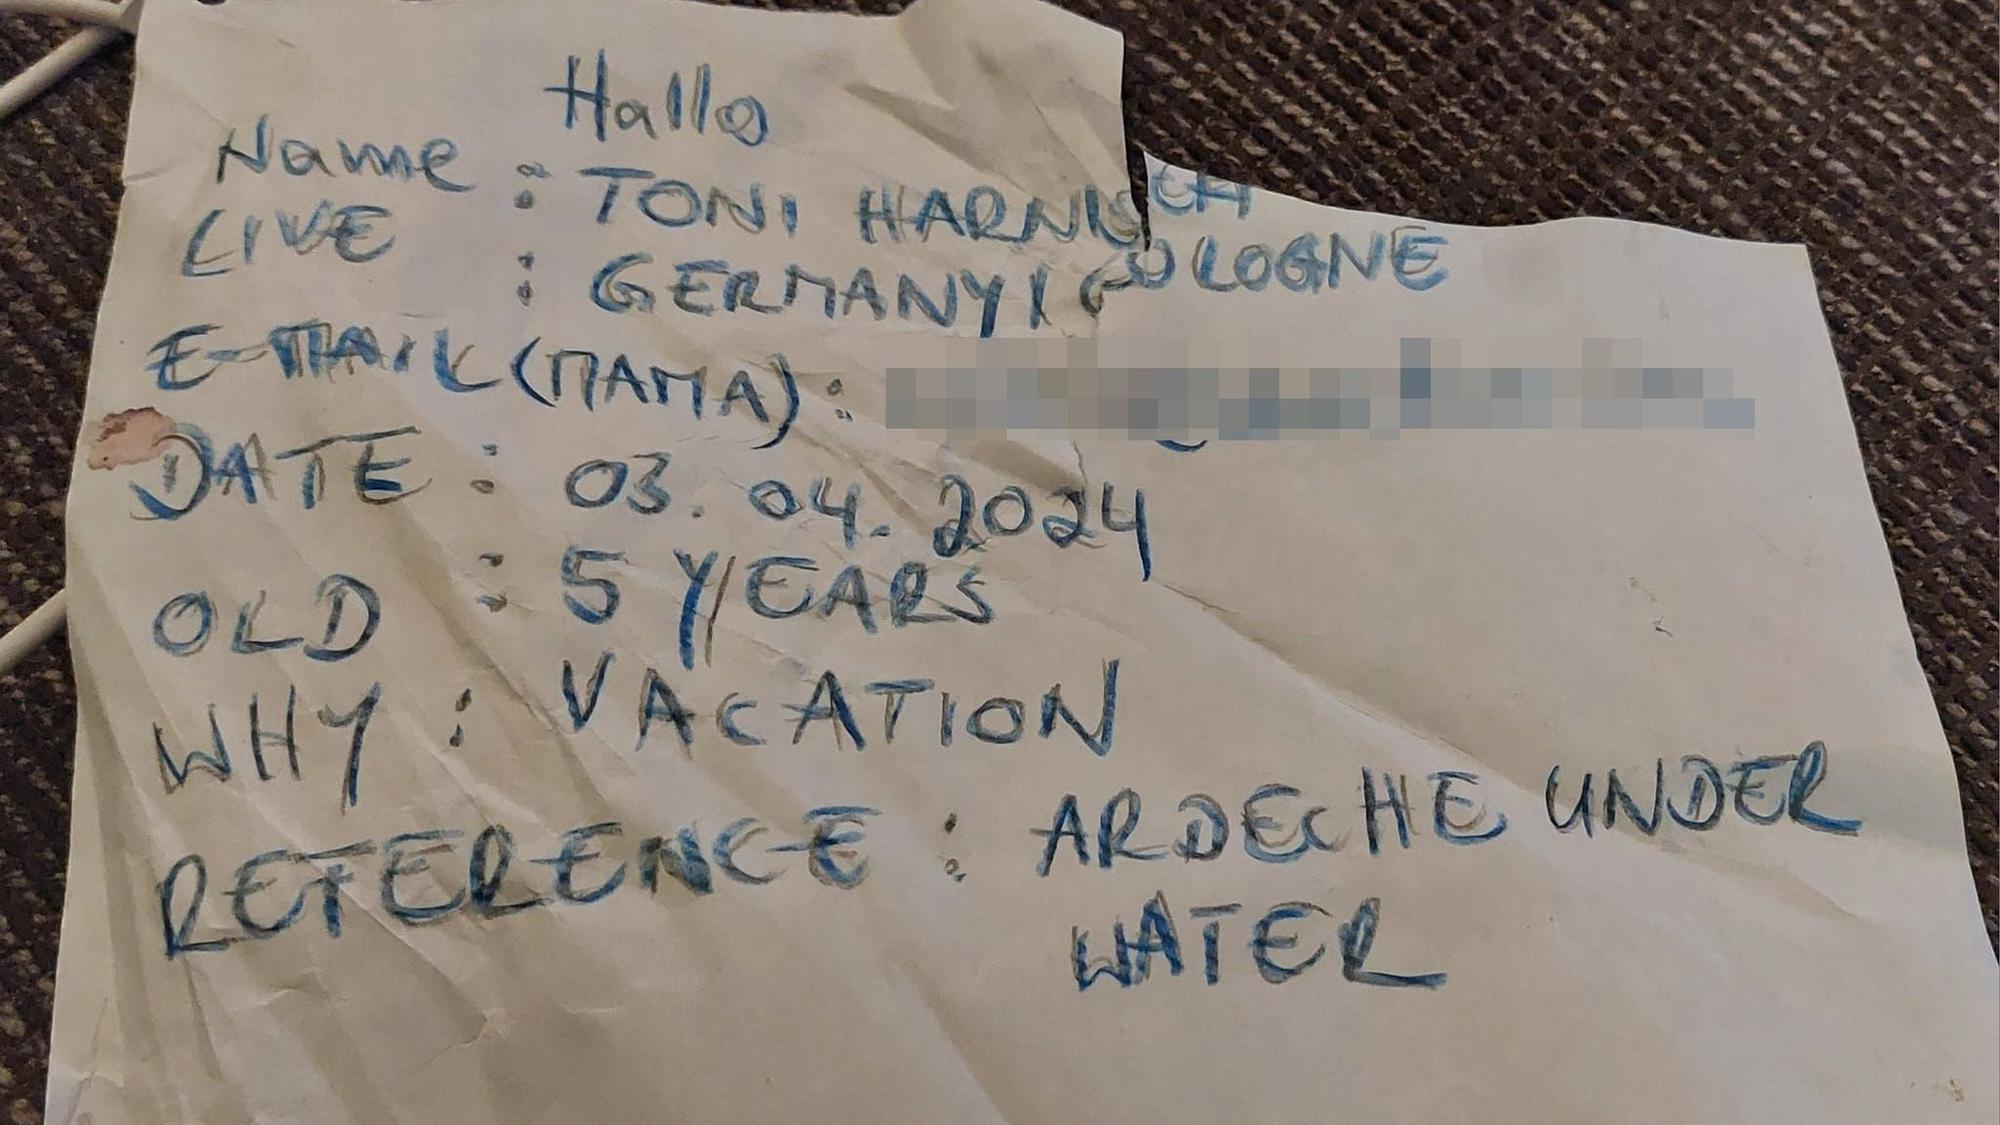 Hallo
Name : TONI HARNISCH
LIVE : GERMANY / COLOGNE
E-MAIL (MAMA) :
DATE : 03.04.2024
OLD : 5 YEARS
WHY : VACATION
REFERENCE : ARDECHE UNDER
WATER